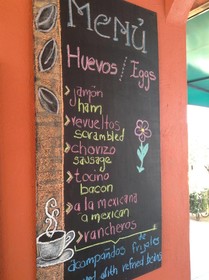 MENÚ
Huevos / Eggs
jamón
ham
revueltos
scrambled
chorizo
sausage
tocino
bacon
a la mexicana
a mexican
rancheros
acompañados de frijoles
and with refried beans